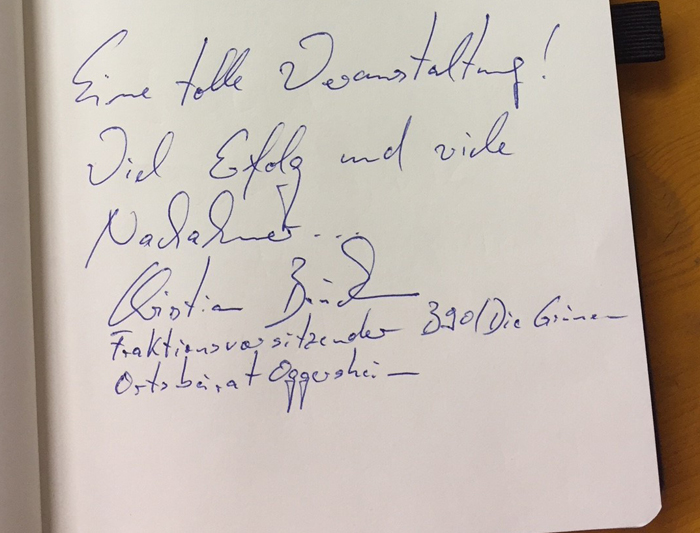 Eine tolle Veranstaltung!
Viel Erfolg und viele
Nachahmer...
Christian
Fraktionsvorsitzender B90/Die Grünen
Ortsbeirat Oggersheim